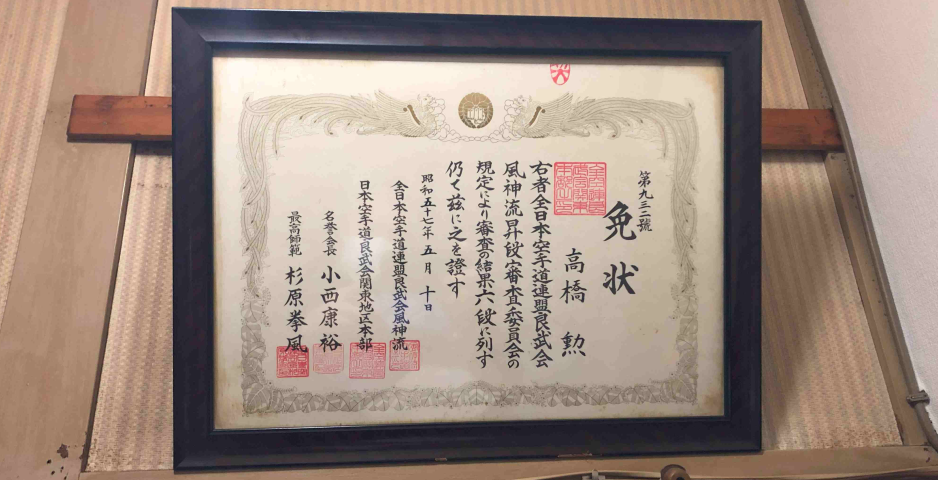 第九三二號
免状
高橋 勲
右者全日本空手道連盟良武会
風神流昇段審査委員会の
規定により審査の結果六段に列す
仍て茲に之を證す
昭和五十七年五月十日
全日本空手道連盟良武会風神流
日本空手道良武会関東地区本部
名誉会長 小西康裕
最高師範 杉原拳風